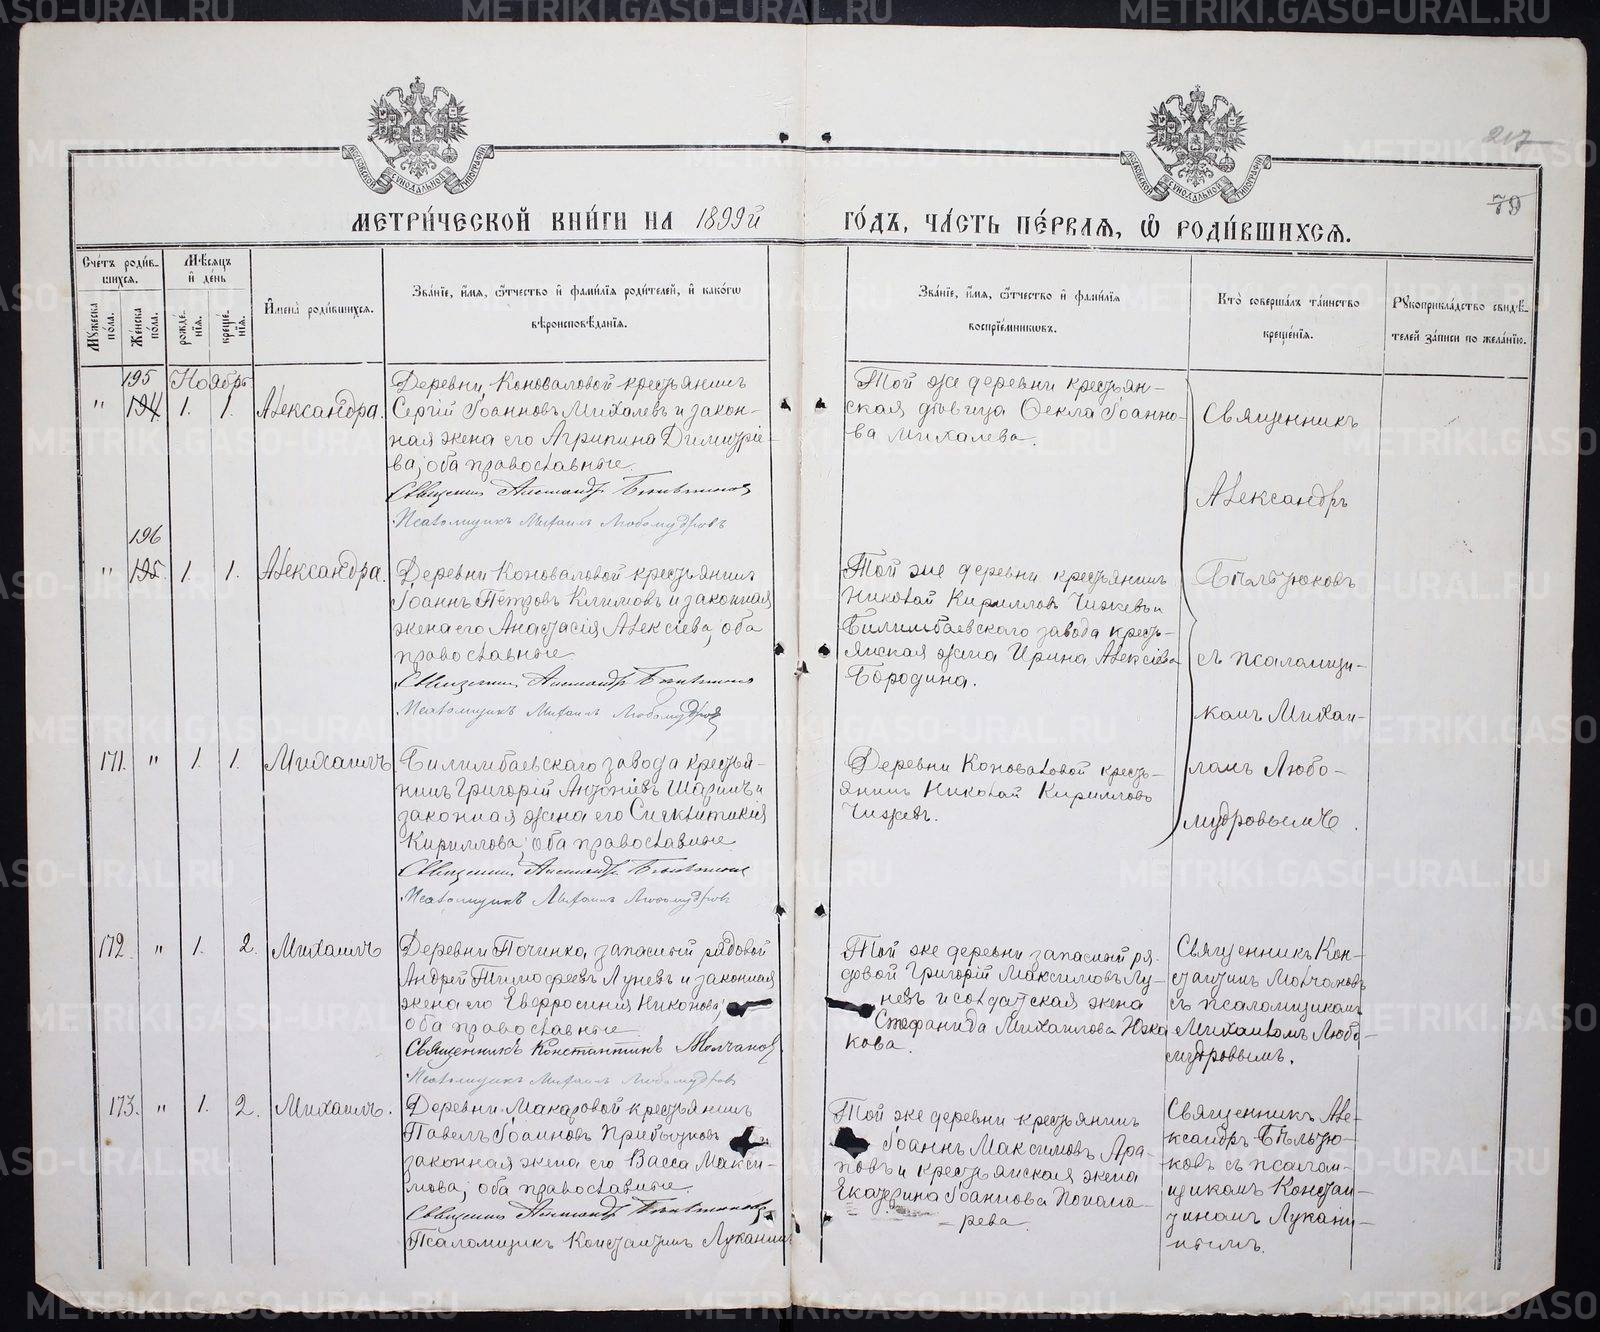 217
79
МЕТРИ́ЧЕСКОЙ КНИ́ГИ НА 1899й ГО́ДЪ, ЧА́СТЬ ПЕ́РВАЯ, Ѡ РОДИ́ВШИХСЯ.
Сче́тъ роди́в-
шихся.
Му́жеска по́ла.
Же́нска по́ла.
Мѣ́сяцъ
и҆ де́нь
рожде́нїя.
креще́нїя.
И҆мена̀ роди́вшихся.
Зва́нїе, и҆́мя, ѻ҆́тчество и҆ фами́лїя роди́телей, и҆ како́гѡ
вѣроисповѣ́данїя.
Зва́нїе, и҆́мя, ѻ҆́тчество и҆ фами́лїя
воспрїе́мниковъ.
Кто̀ соверша́лъ та́инство
креще́нїя.
Рꙋкоприкла́дство свидѣ́-
телей за́писи по жела́нїю.
195 Ноябрь
" 194 1. 1. Александра.
Деревни Коноваловой крестьянинъ
Сергій Іоанновъ Михалевъ и закон-
ная жена его Агрипина Димитріе-
ва; оба православные.
Священникъ Александръ Бѣльтюковъ
Псаломщикъ Михаилъ Любомудровъ
Той же деревни крестьян-
ская дѣвица Ѳекла Іоанно-
ва Михалева.
Священникъ
Александръ
Бѣльтюковъ
съ псаломщи-
комъ Михаи-
ломъ Любо-
мудровымъ.
196
" 195. 1. 1. Александра.
Деревни Коноваловой крестьянинъ
Іоаннъ Петровъ Климовъ и законная
жена его Анастасія Алексіева, оба
православные
Священникъ Александръ Бѣльтюковъ
Псаломщикъ Михаилъ Любомудровъ
Той же деревни крестьянинъ
Николай Кирилловъ Чижевъ и
Билимбаевскаго завода кресть-
янская жена Ирина Алексіева
Бородина.
171. " 1. 1. Михаилъ
Билимбаевскаго завода крестья-
нинъ Григорій Антоніевъ Шаринъ и
законная жена его Сигклитикія
Кириллова; оба православные
Священникъ Александръ Бѣльтюковъ
Псаломщикъ Михаилъ Любомудровъ
Деревни Коноваловой кресть-
янинъ Николай Кирилловъ
Чижевъ.
172. " 1. 2. Михаилъ
Деревни Починка, запасный рядовой
Андрей Тимофеевъ Луневъ и законная
жена его Евфросинія Никонова;
оба православные
Священникъ Константинъ Молчановъ
Псаломщикъ Михаилъ Любомудровъ
Той же деревни запасный ря-
довой Григорій Максимовъ Лу-
невъ и солдатская жена
Стефанида Михаилова
кова.
Священникъ Кон-
стантинъ Молчановъ
съ псаломщикомъ
Михаиломъ Любо-
мудровымъ.
173. " 1. 2. Михаилъ.
Деревни Макаровой крестьянинъ
Павелъ Іоанновъ Прибытковъ
законная жена его Васса Макси-
мова; оба православные.
Священникъ Александръ Бѣльтюковъ
Псаломщикъ Константинъ Луканинъ
Той же деревни крестьянинъ
Іоаннъ Максимовъ Ара-
повъ и крестьянская жена
Екатерина Іоаннова Понома-
рева.
Священникъ Але-
ксандръ Бѣльтю-
ковъ съ псалом-
щикомъ Констан-
тиномъ Лукани-
нымъ.
METRIKI.GASO-URAL.RU